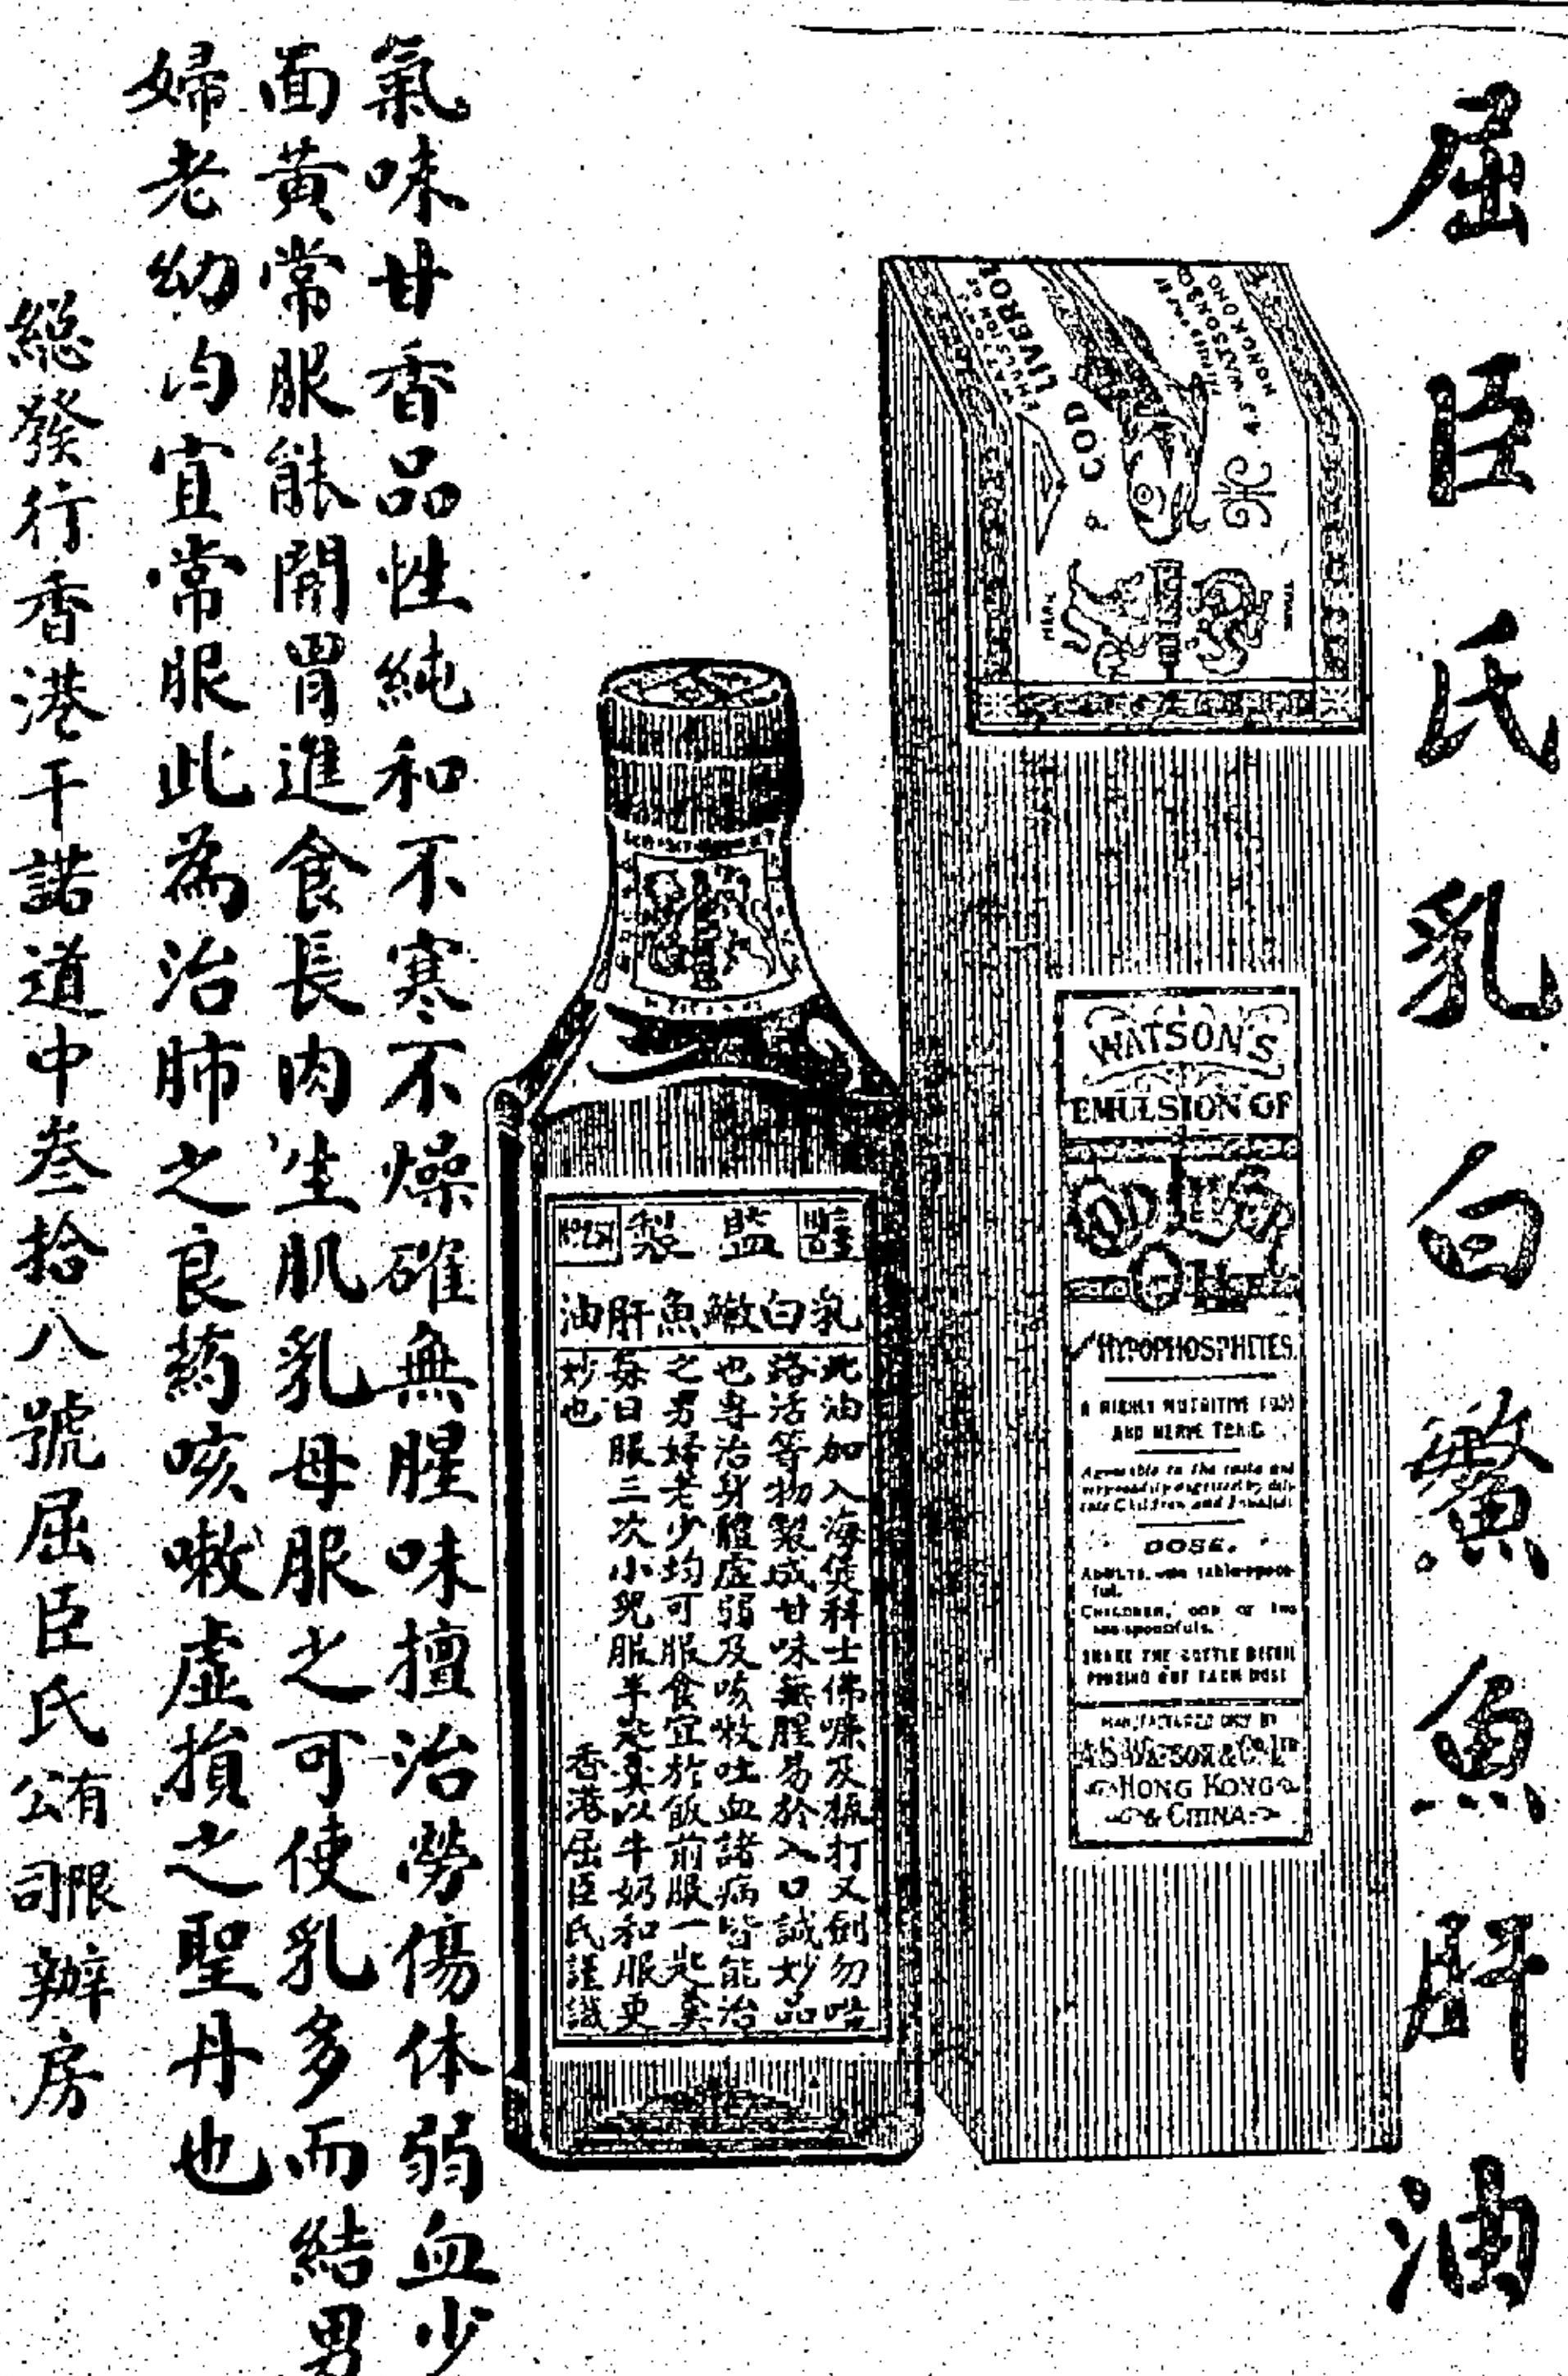 屈臣氏乳白鰵魚肝油
LIVER OIL
COD
A.S. WATSON & CO
HONGKONG
MARK
TRADE
WATSON'S
EMULSION OF
COD LIVER
OIL
HYPOPHOSPHITES.
A HIGHLY NUTRITIVE FOOD
AND NERVE TONIC
Agreeable to the taste and
Children and Invalids
DOSE.
ADULTS, one table-spoon-
ful.
CHILDREN, one or two
tea-spoonfuls.
SHAKE THE BOTTLE BEFORE
POURING OUT EACH DOSE
MANUFACTURED ONLY BY
A.S. WATSON & CO. LTD
HONG KONG
& CHINA
監製
乳白鰵魚肝油
此油加入海煲科士佛嗹及梳打又倒勿
路活等物製成甘味無腥易於入口誠妙品
也專治身體虛弱及咳嗽吐血諸病皆能治
之男婦老少均可服食宜於飯前服一匙羹
每日服三次小兒服半匙羹以牛奶和服更
妙也
香港屈臣氏謹識
氣味甘香品性純和不寒不燥確無腥味擅治勞傷体弱血少
面黃常服能開胃進食長肉生肌乳母服之可使乳多而結男
婦老幼均宜常服此為治肺之良药咳嗽虛損之聖丹也
總發行香港干諾道中叁拾八號屈臣氏有限公司辦房